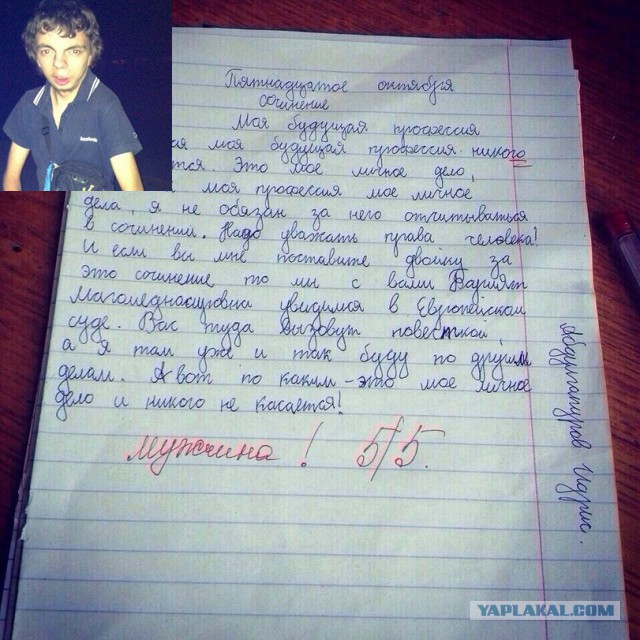 Пятнадцатое октября
сочинение
Моя будущая профессия
моя будущая профессия никого
Это мое личное дело,
моя профессия мое личное
дела, я не обязан за него отчитываться
в сочинении. Надо уважать права человека!
И если вы мне поставите двойку за
это сочинение то мы с вами Барият
Магомеднасировна увидимся в Европейском
суде. Вас туда вызовут повесткой,
а я там уже и так буду по другим
делам. А вот по каким - это мое личное
дело и никого не касается!
мужчина! 5/5.
Абдулгапуров Идрис.
YAPLAKAL.COM